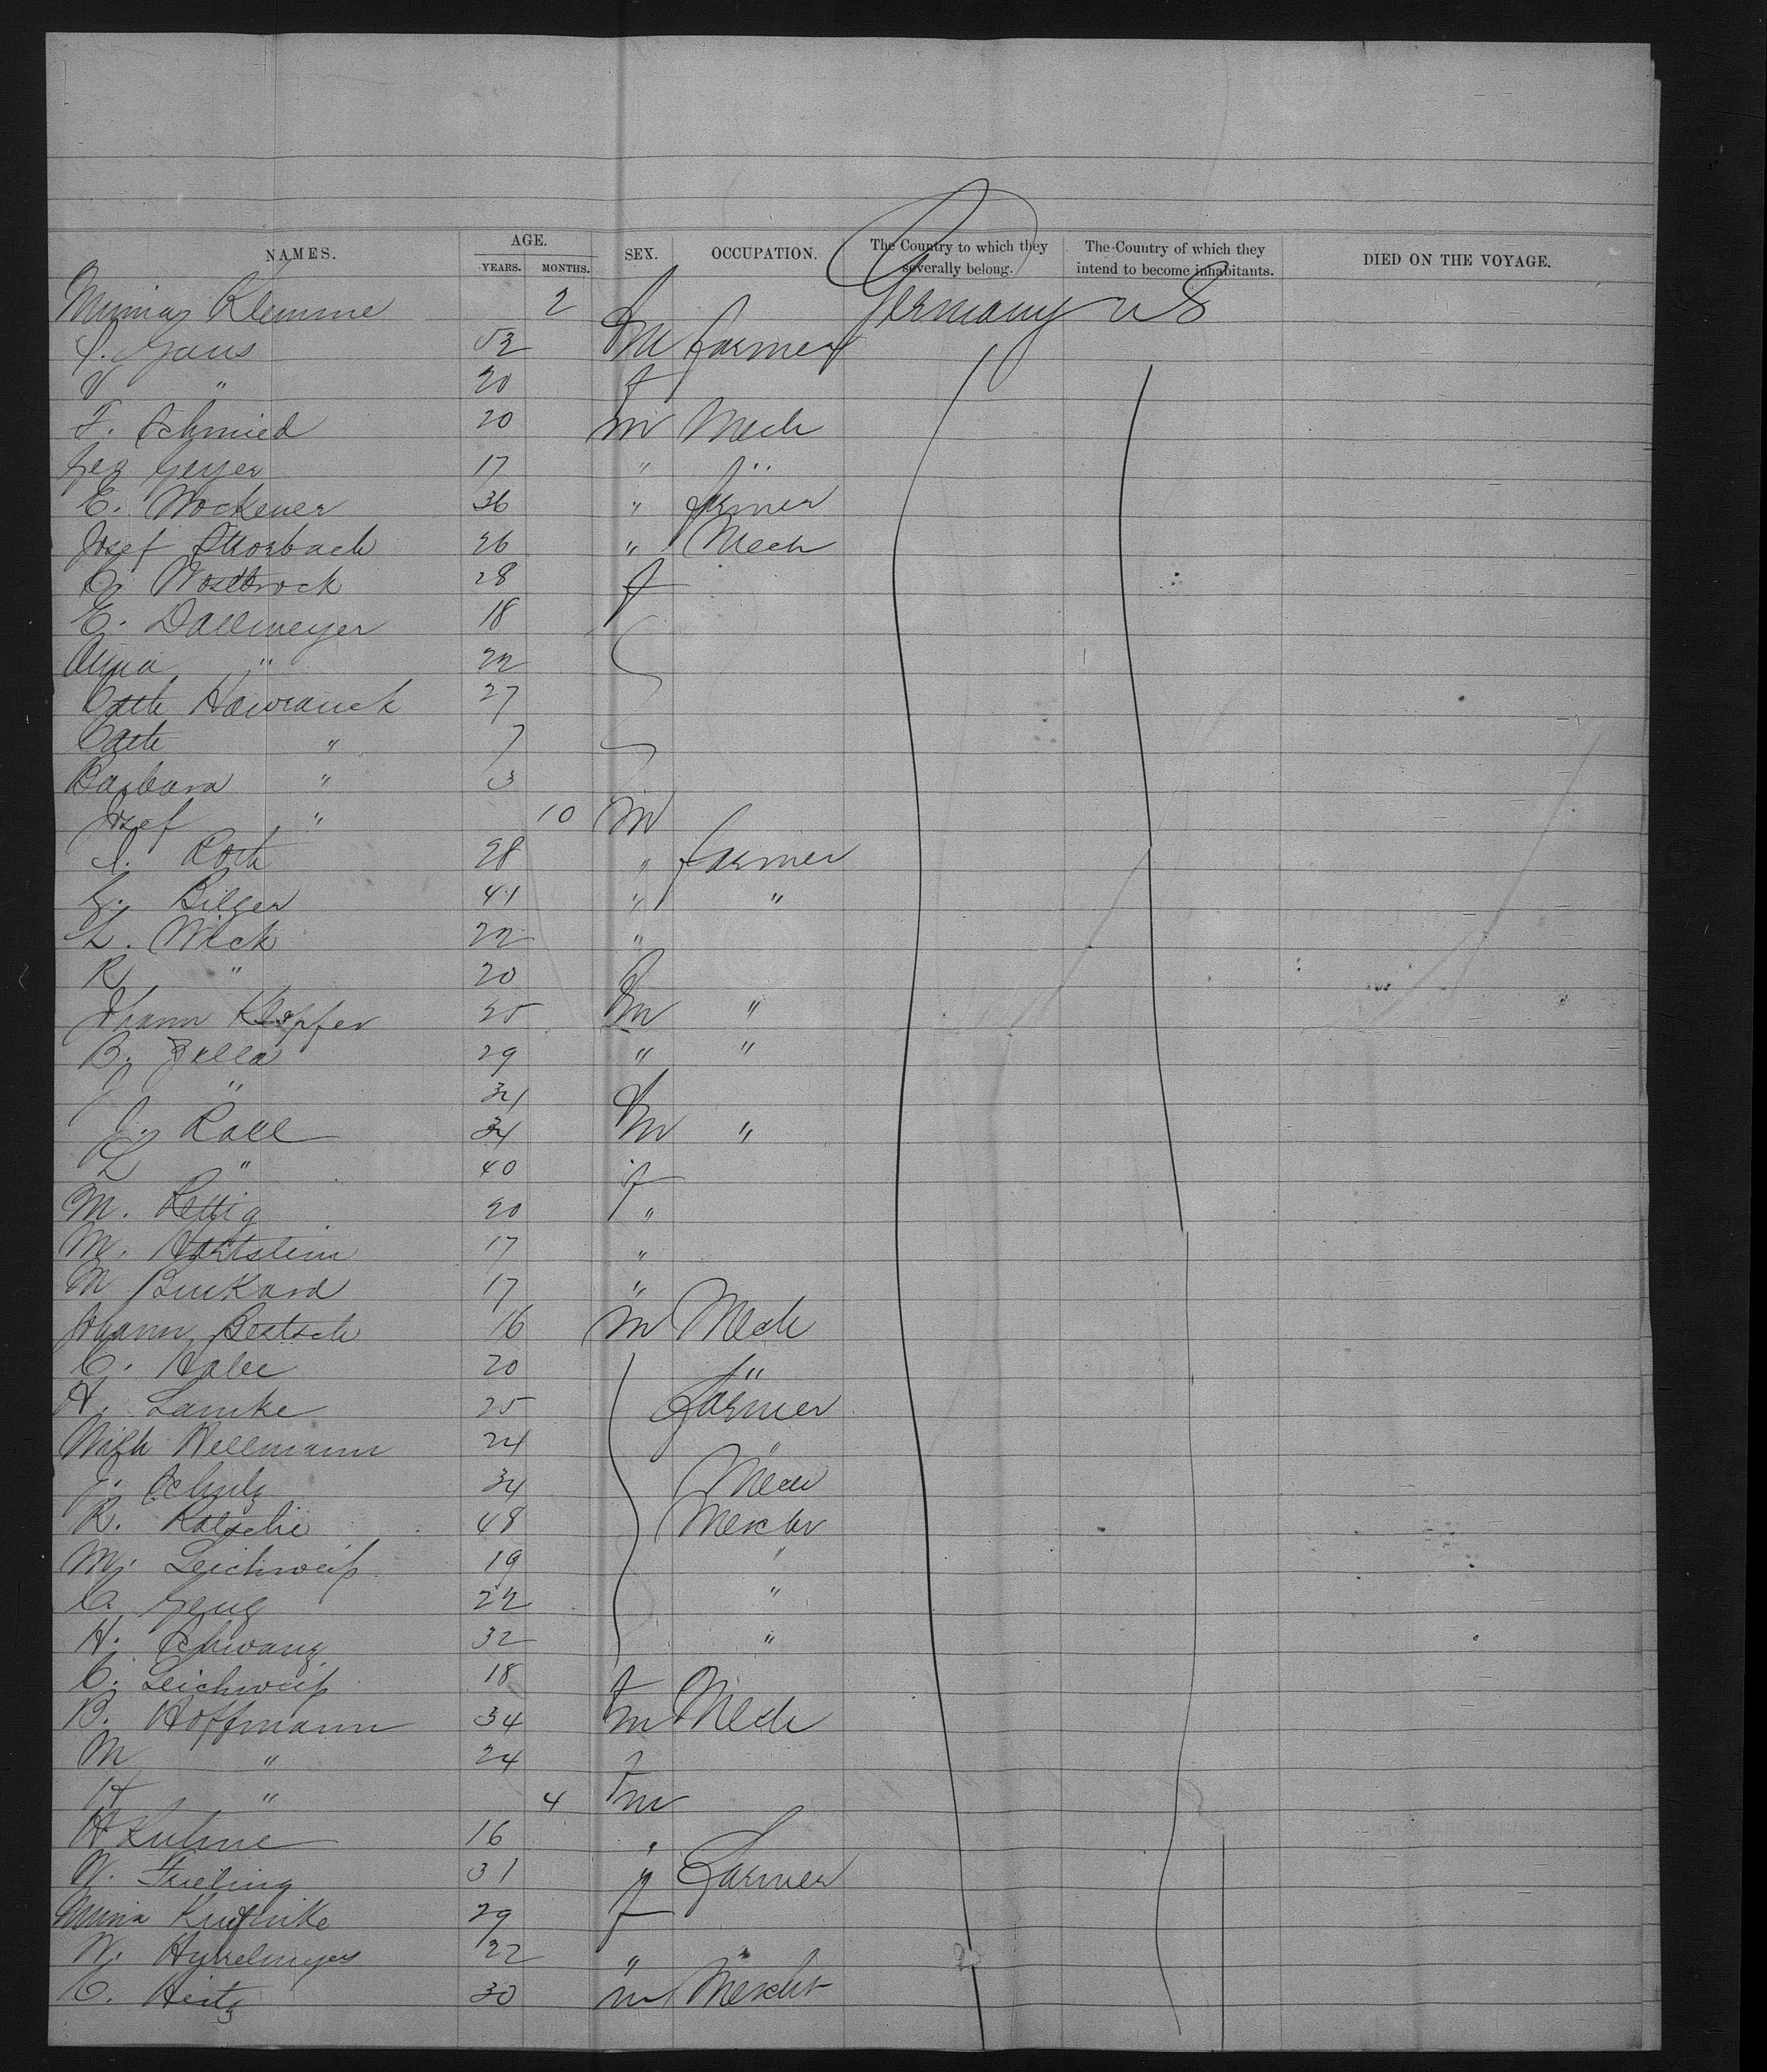 NAMES. AGE. YEARS. MONTHS. SEX. OCCUPATION. The Country to which they severally belong. The Country of which they intend to become inhabitants. DIED ON THE VOYAGE.
Klemme 2 f Germany U S
Gaus 52 m farmer
V " 20 f
F. Schmied 20 m Mech
Geo Geyer 17 " "
E. Wockener 36 " farmer
Josef 26 " Mech
C. 28 f
E. Dallmeyer 18
Anna " 22
Cath Hawranek 27
Cath " 7
Barbara " 3
Josef " 10 m
Roth 28 " farmer
G. Bilger 41 " "
L. Wick 22 "
R " 20 f
Johann Klopfer 25 m "
B. Zulla 29 " "
J " 31 f
J. Rall 34 m "
L " 40 f
M. Rettig 20 "
M. 17 "
M Burkard 17 "
Johann Bertsch 16 m Mech
C. Habe 20 "
H. Lamke 25 farmer
Wilh Wellmann 24 "
J. Schulz 34 Mech
R. 48 Mercht
M. Leichweiß 19 "
C. Geng 22 "
H. Schwanz 32 "
C. Leichweiß 18 f
B. Hoffmann 34 m Mech
M " 24 f
H " 4 m
H Kuhne 16 "
W. Frieling 31 " Farmer
Minna 29 f
W. 22 "
C. Heitz 30 m Mercht